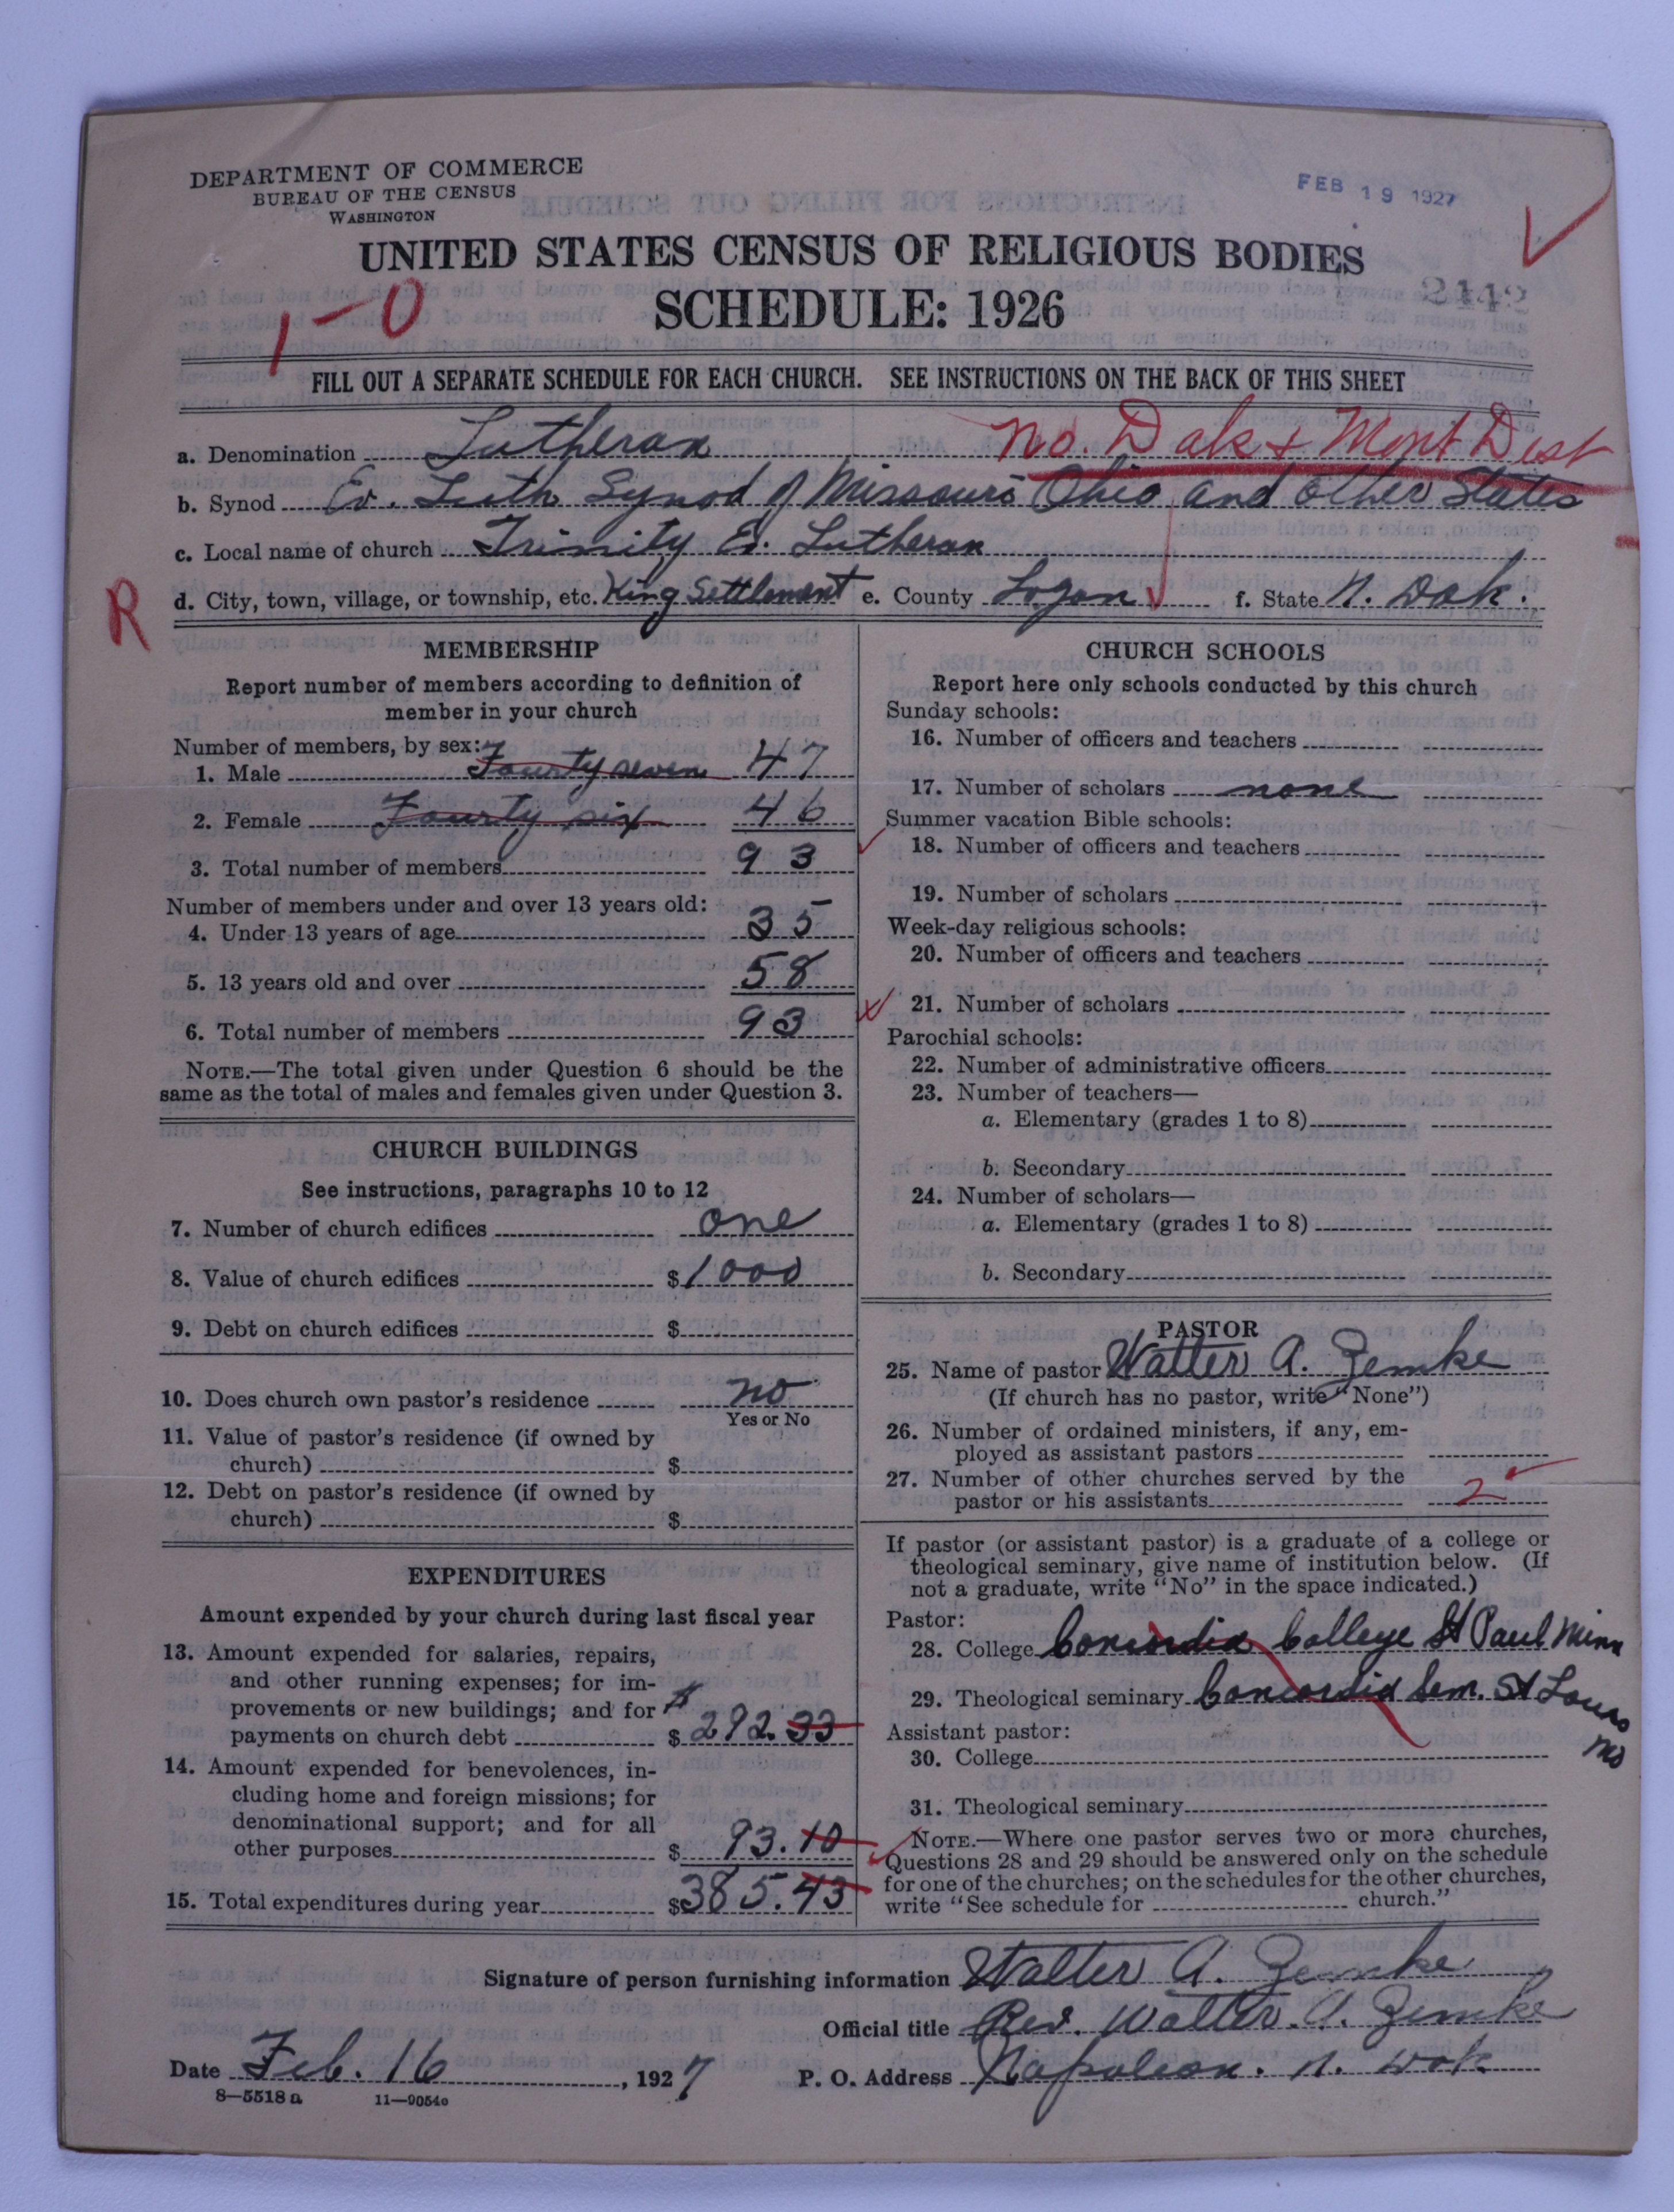 DEPARTMENT OF COMMERCE
BUREAU OF THE CENSUS
WASHINGTON
FEB 19 1927
UNITED STATES CENSUS OF RELIGIOUS BODIES
SCHEDULE: 1926
2442
1-0
FILL OUT A SEPARATE SCHEDULE FOR EACH CHURCH. SEE INSTRUCTIONS ON THE BACK OF THIS SHEET
No. Dak & Mont Dist
a. Denomination Lutheran
b. Synod Ev. Luth Synod of Missouri Ohio and other States
c. Local name of church Trinity Ev. Lutheran
R
d. City, town, village, or township, etc. King Settlement e. County Logan f. State N. Dak.
MEMBERSHIP
Report number of members according to definition of
member in your church
Number of members, by sex:
1. Male Fourty seven 47
2. Female Fourty six 46
3. Total number of members 93
Number of members under and over 13 years old:
4. Under 13 years of age 35
5. 13 years old and over 58
6. Total number of members 93
NOTE.—The total given under Question 6 should be the
same as the total of males and females given under Question 3.
CHURCH BUILDINGS
See instructions, paragraphs 10 to 12
7. Number of church edifices one
8. Value of church edifices $1000
9. Debt on church edifices $
10. Does church own pastor's residence no
Yes or No
11. Value of pastor's residence (if owned by
church) $
12. Debt on pastor's residence (if owned by
church) $
EXPENDITURES
Amount expended by your church during last fiscal year
13. Amount expended for salaries, repairs,
and other running expenses; for im-
provements or new buildings; and for
payments on church debt $ 292.33
14. Amount expended for benevolences, in-
cluding home and foreign missions; for
denominational support; and for all
other purposes $ 93.10
15. Total expenditures during year $385.43
CHURCH SCHOOLS
Report here only schools conducted by this church
Sunday schools:
16. Number of officers and teachers
17. Number of scholars none
Summer vacation Bible schools:
18. Number of officers and teachers
19. Number of scholars
Week-day religious schools:
20. Number of officers and teachers
21. Number of scholars
Parochial schools:
22. Number of administrative officers
23. Number of teachers—
a. Elementary (grades 1 to 8)
b. Secondary
24. Number of scholars—
a. Elementary (grades 1 to 8)
b. Secondary
PASTOR
25. Name of pastor Walter A. Zemke
(If church has no pastor, write "None")
26. Number of ordained ministers, if any, em-
ployed as assistant pastors
27. Number of other churches served by the
pastor or his assistants 2
If pastor (or assistant pastor) is a graduate of a college or
theological seminary, give name of institution below. (If
not a graduate, write "No" in the space indicated.)
Pastor:
28. College Concordia College St Paul Minn
29. Theological seminary Concordia Sem. St Louis
Mo
Assistant pastor:
30. College
31. Theological seminary
NOTE.—Where one pastor serves two or more churches,
Questions 28 and 29 should be answered only on the schedule
for one of the churches; on the schedules for the other churches,
write "See schedule for church."
Signature of person furnishing information Walter A. Zemke
Official title Rev. Walter. A. Zemke
Date Feb. 16, 1927 P. O. Address Napoleon. N. Dak
8—5518 a 11—9054o